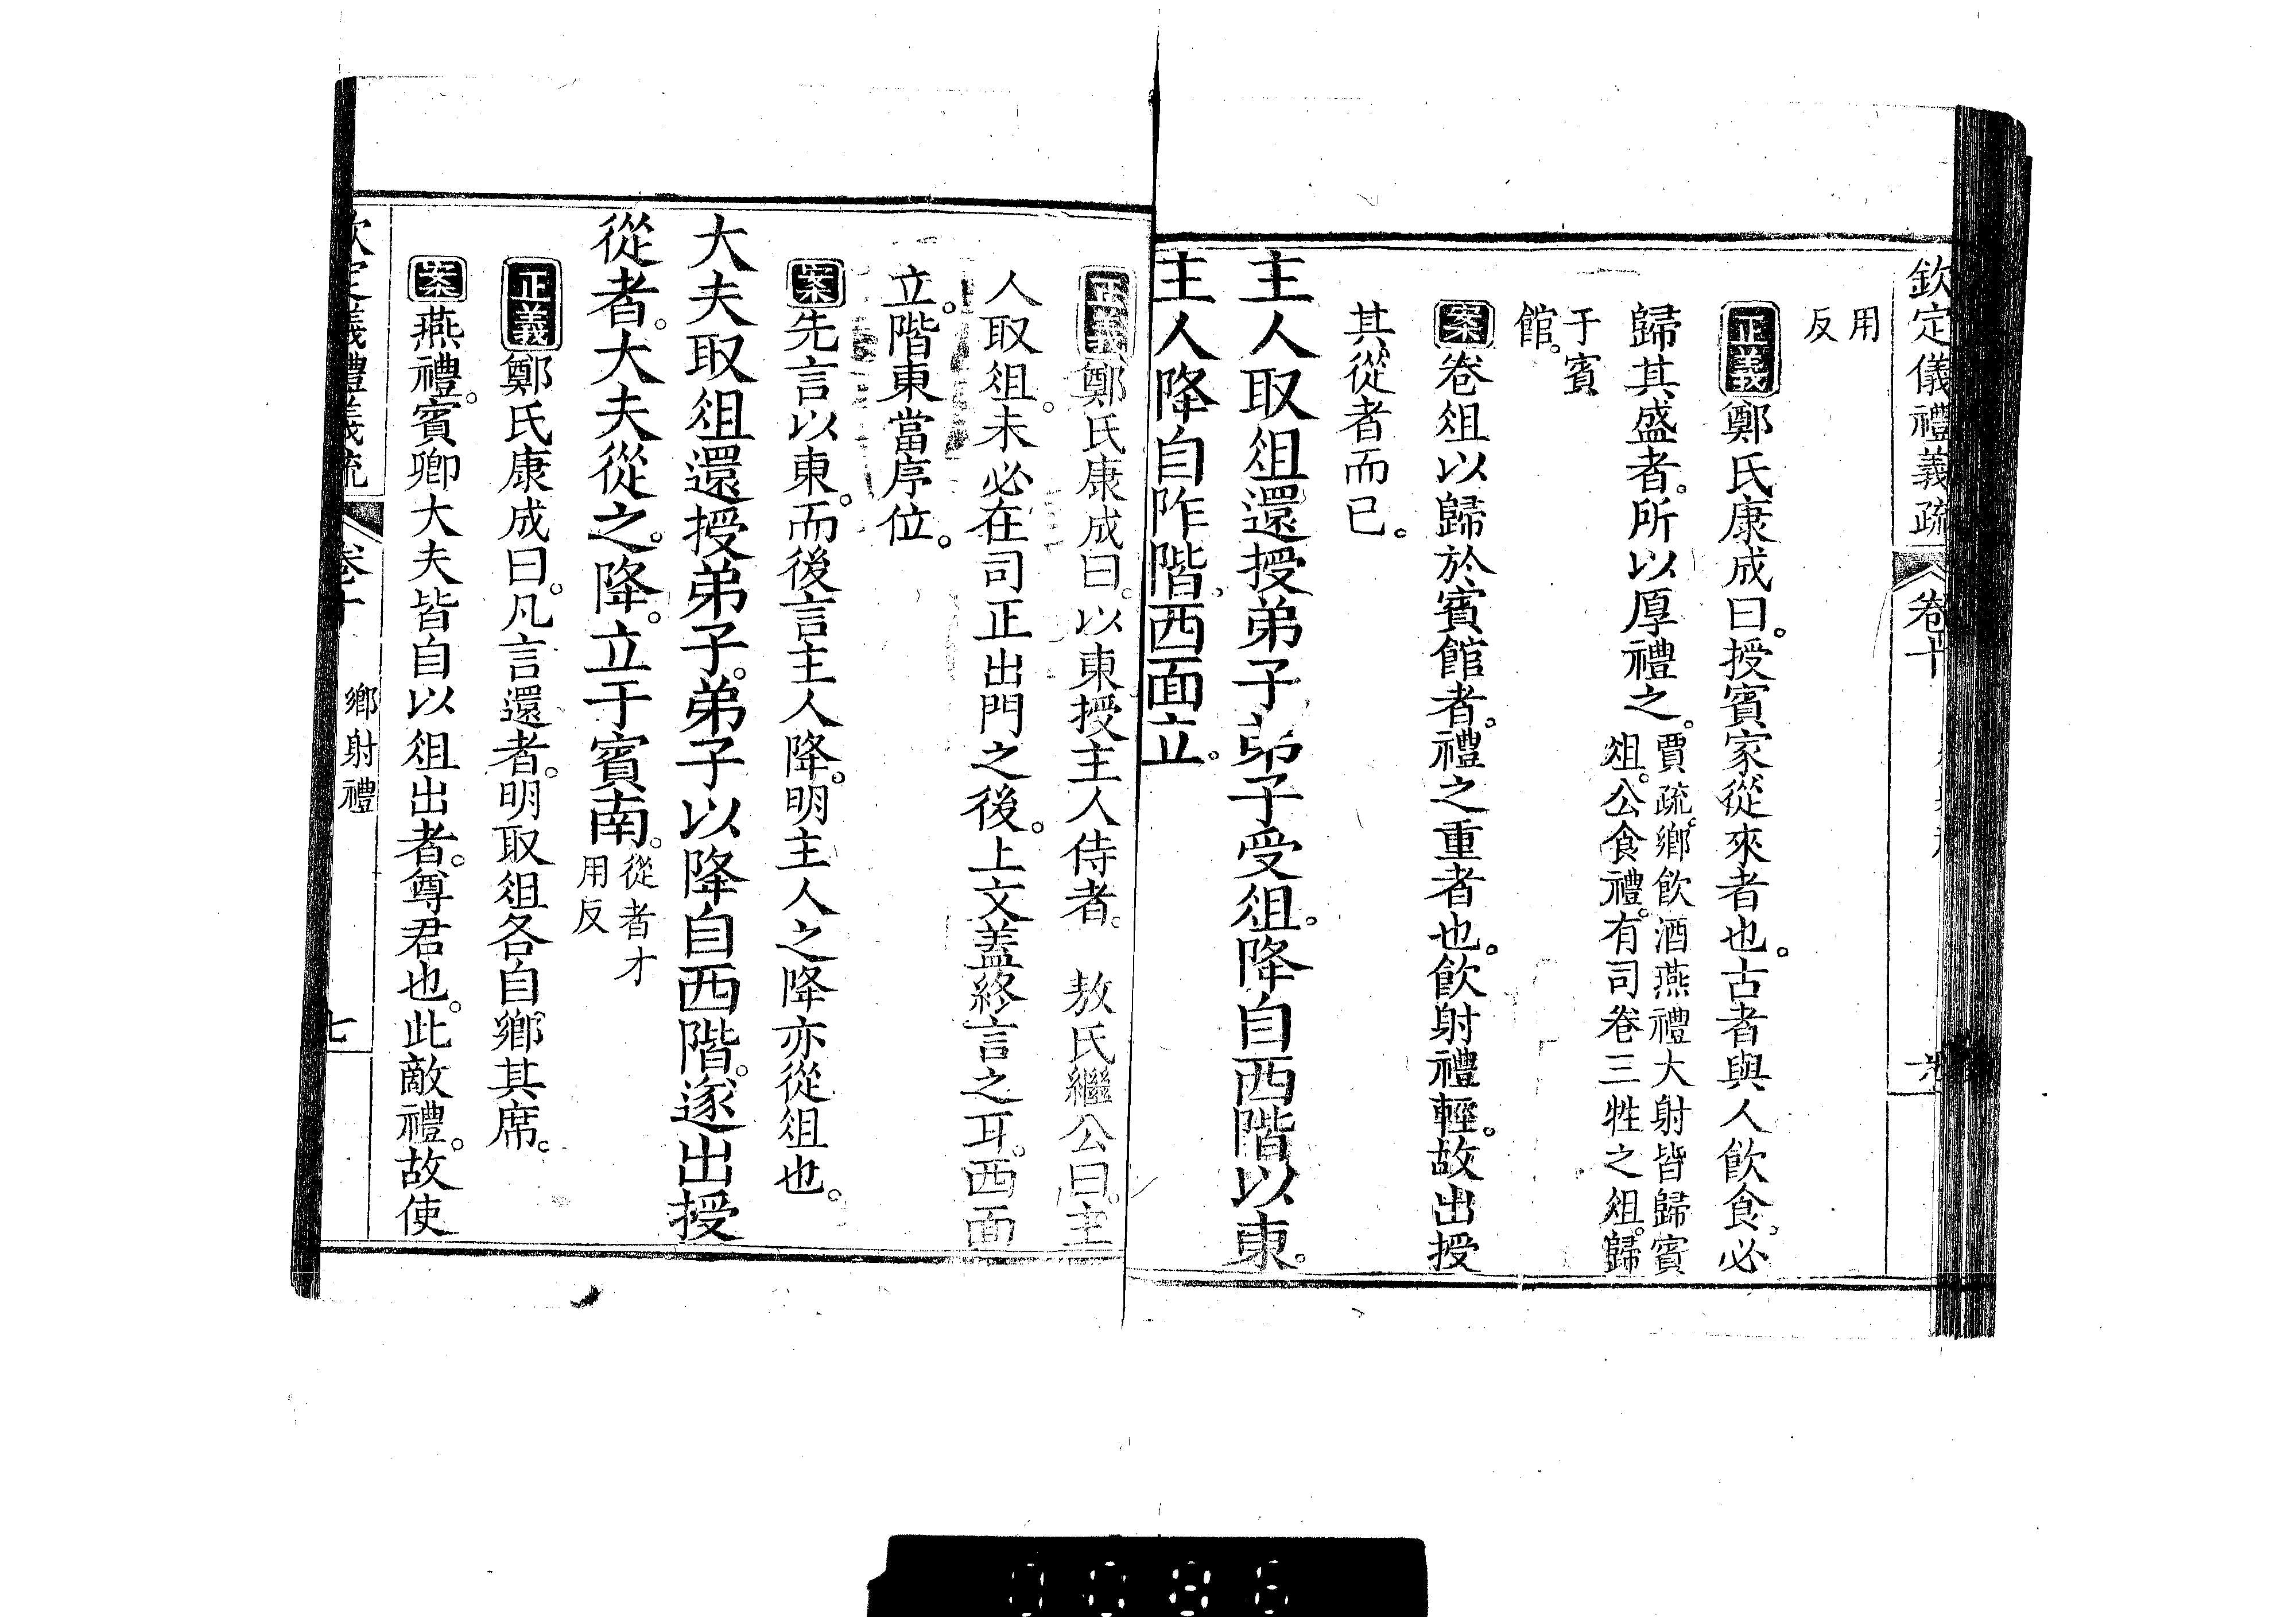 欽定儀禮義疏 卷十
用
反
正義鄭氏康成曰。授賓家從來者也。古者與人飲食。必
歸其盛者。所以厚禮之。賈疏。鄉飲酒燕禮大射皆歸賓
俎。公食禮。有司卷三牲之俎。歸
于賓
館。
案卷俎以歸於賓館者。禮之重者也。飲射禮輕。故出授
其從者而已。
主人取俎還授弟子弟子受俎。降自西階以東。
主人降自阼階。西面立。
正義鄭氏康成曰。以東授主人侍者。 敖氏繼公曰。主
人取俎。未必在司正出門之後。上文蓋終言之耳。西面
立。階東當序位。
案先言以東。而後言主人降。明主人之降亦從俎也。
大夫取俎還授弟子。弟子以降自西階。遂出授
從者。大夫從之。降。立于賓南。從者才
用反
正義鄭氏康成曰。凡言還者。明取俎各自鄉其席。
案燕禮。賓卿大夫皆自以俎出者。尊君也。此敵禮。故使
欽定儀禮義疏 卷十 鄉射禮 七